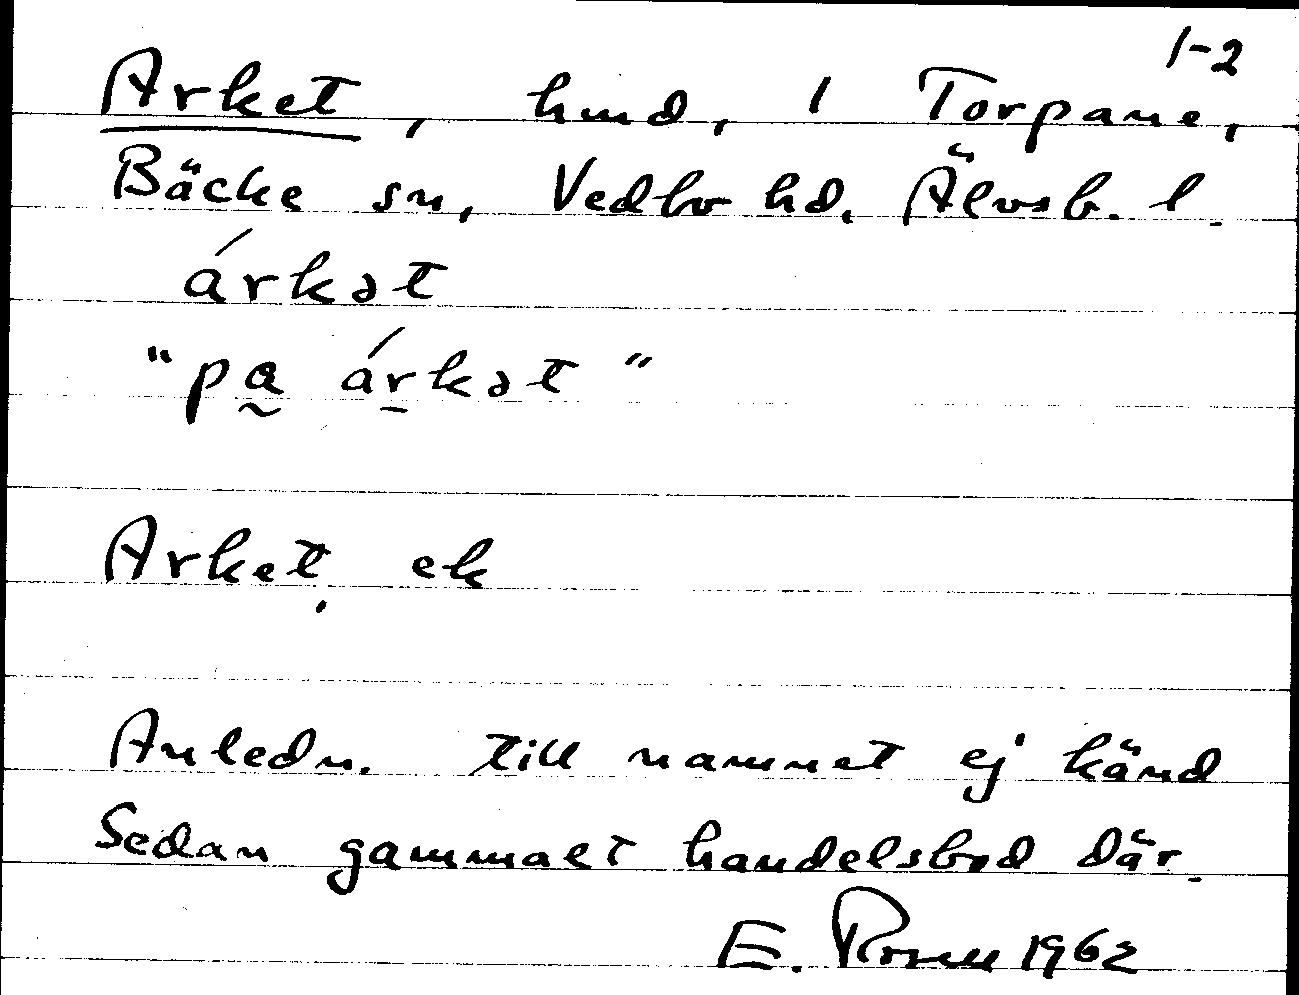 1-2
Arket, hmd, 1 Torpane,
Bäcke sn, Vedbo hd. Älvsb. l.
árkət
"pa árkət"
Arket, ek
Anledn. till namnet ej känd
Sedan gammalt handelsbod där.
E. Rosell 1962